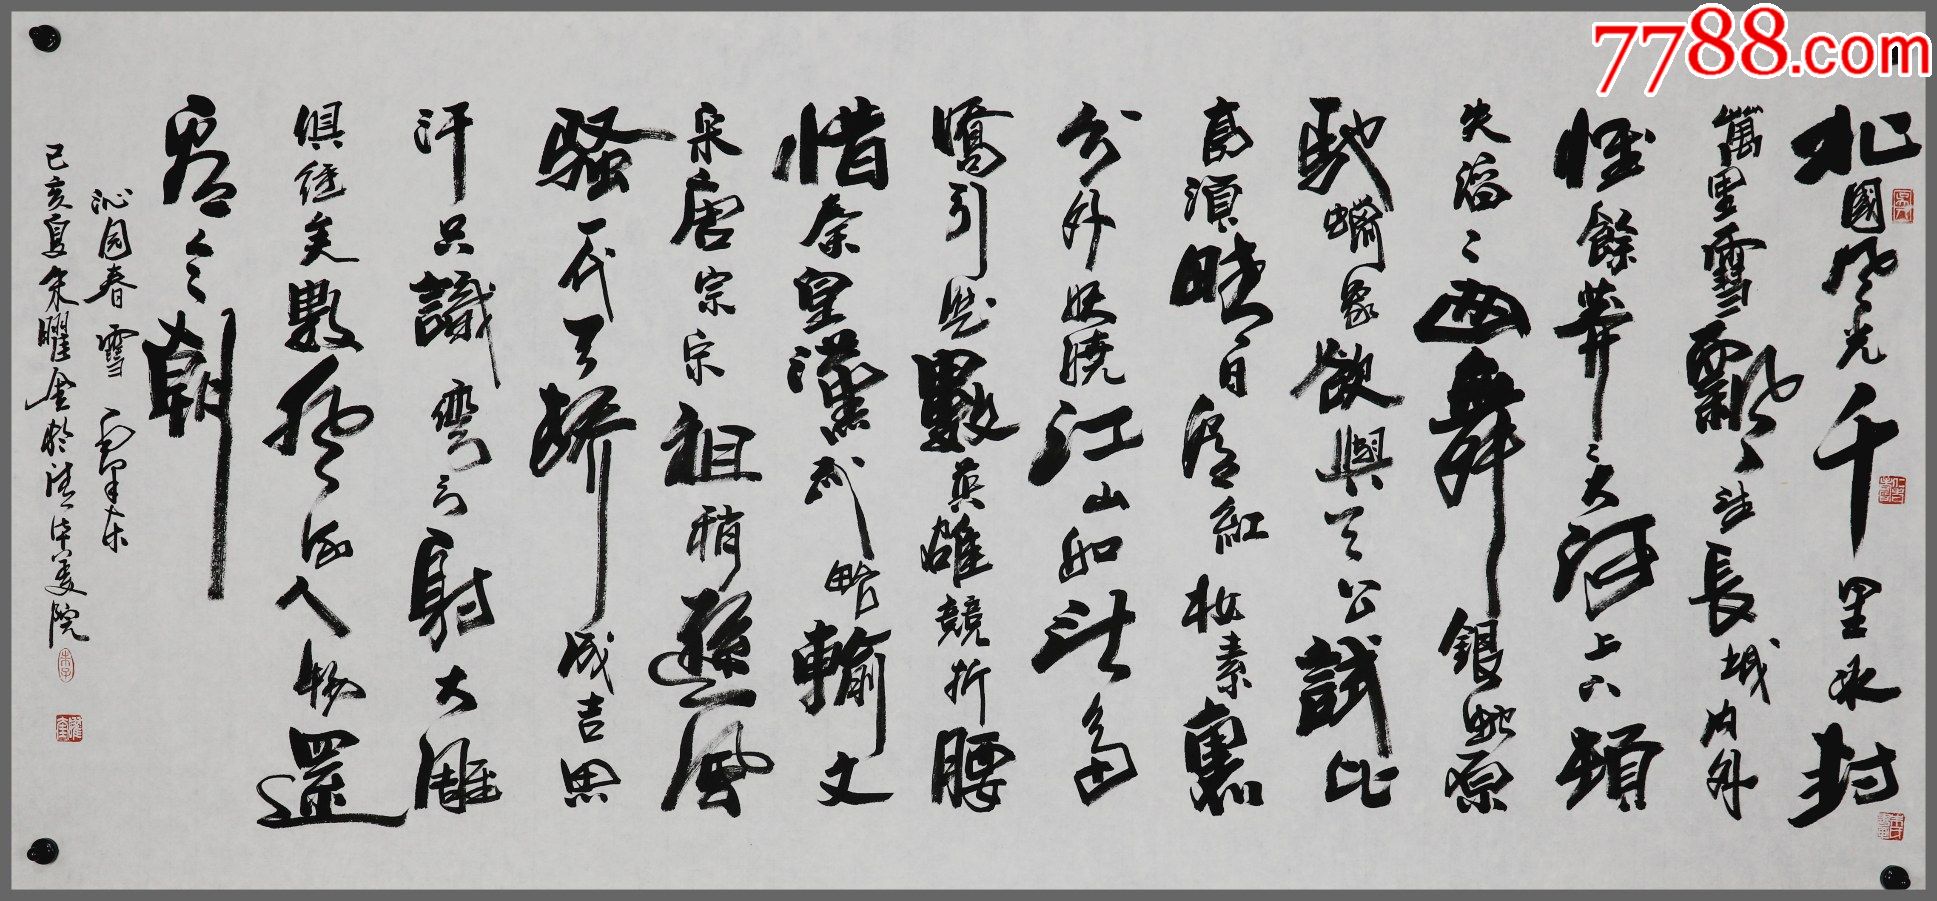 北國風光千里冰封
萬里雪飄望長城內外
惟餘莽〻大河上下頓
失滔〻山舞銀蛇原
馳蠟象欲與天公試比
高須晴日看紅妝素裹
分外妖嬈江山如此多
嬌引無數英雄競折腰
惜秦皇漢武略輸文
采唐宗宋祖稍遜風
騷一代天驕成吉思
汗只識彎弓射大雕
俱往矣數風流人物還
看今朝
沁园春 雪 毛泽东
己亥夏朱曜金於清华美院
7788.com